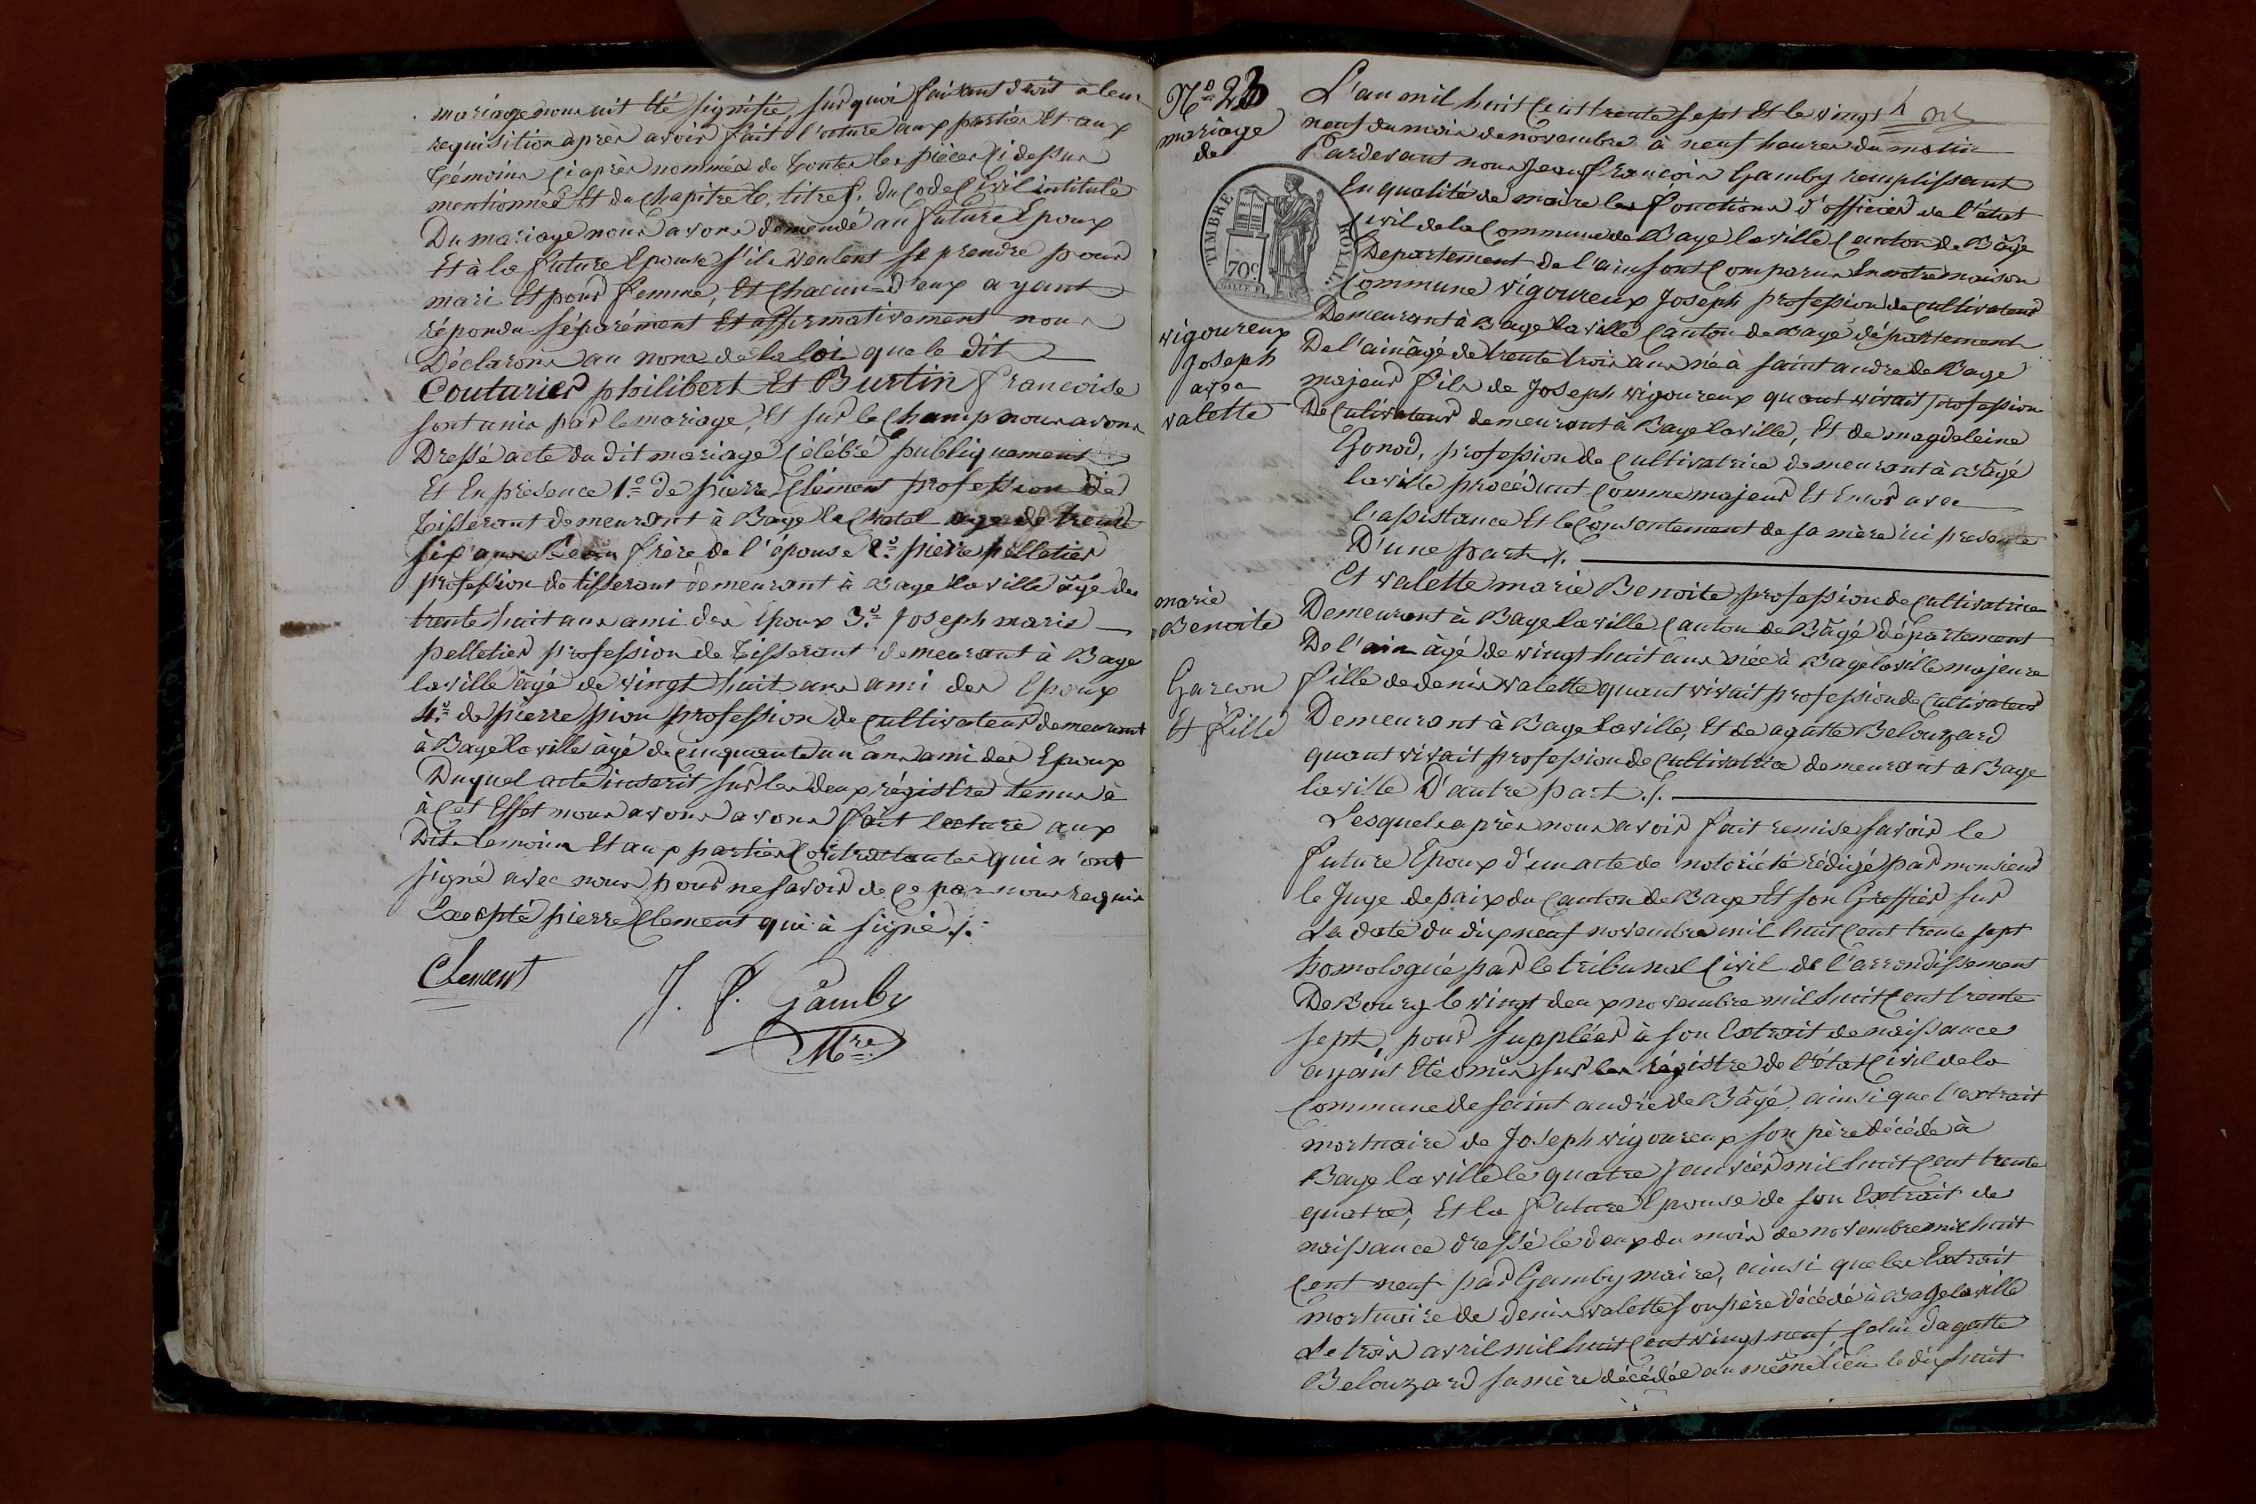 mariage nous ait été signifié, sur quoi faisant droit à leur
requisition après avoir fait l'ecture aux parties Et aux
témoins ci après nommés de toutes les pièces ci dessus
mentionnées Et du Chapitre 6. titre 5. du Code Civil intitulé
Du mariage nous avons demendé au future Epoux
Et à la future Epouse s'ils veulent se prendre pour
mari Et pour femme, Et Chacun d'eux ayant
répondu séparément Et affirmativement nous
Déclarons au nom de la loi que le dit
Couturier philibert Et Burtin francoise
sont unis par le mariage, Et sur le Champ nous avons
Dressé acte du dit mariage Célébré publiquement
Et En présence 1.º de pierre Clément profession de
tisserant demeurant à Bagé le Chatel agé de trente
six ans Beau frère de l'épouse 2.º pierre pelletier
profession de tisserant demeurant à Bagé la ville âgé de
trente huit ans ami des Epoux 3.º Joseph marie
pelletier profession de tisserant demeurant à Bagé
la ville âgé de vingt huit ans ami des Epoux
4.º de pierre pion profession de cultivateur demeurant
à Bagé la ville âgé de cinquante un ans ami des Epoux
Duquel acte inscrit sur les deux régistre tenus à
à Cet Effet nous avons avons fait lecture aux
Dits temoins Et aux parties Contractantes qui n'ont
signé avec nous pour ne savoir de ce par nous requis
Excepté pierre Clement qui à signé ./.
Clement
J. F. Gamby
Mre
Nº 23
mariage
de
TIMBRE ROYAL
70c
vigoureux
Joseph
avec
valette
marie
Benoite
Garcon
Et fille
L'an mil huit Cent trente sept Et le vingt
neuf du mois de novembre à neuf heures du matin
Pardevant nous Jean francois Gamby remplissant
En qualité de maire les fonctions d'officier de l'état
Civil de la Commune de Bagé la ville Canton de Bâgé
Departement de l'ain sont Comparus En notre maison
Commune vigoureux Joseph profession de cultivateur
Demeurant à Bagé la ville Canton de Bagé département
De l'ain âgé de trente trois ans né à saint andré de Bagé
majeur fils de Joseph vigoureux quant vivait profession
De Cultivateur demeurant à Bagé la ville, Et de magdeleine
Gonod, profession de Cultivatrice demeurant à Bâgé
la ville procédant Comme majeur Et Encor avec
l'assistance Et le Consentement de sa mère ici presente
D'une part ./.
Et valette marie Benoite, profession de Cultivatrice
Demeurant à Bagé la ville Canton de Bâgé département
De l'ain âgé de vingt huit ans née à Bagé la ville majeure
fille de denis valette quant vivait profession de Cultivateur
Demeurant à Bagé la ville, Et de agatte Belouzard
quant vivait profession de Cultivatrice demeurant à Bagé
la ville D'autre part ./.
Lesquels après nous avoir fait remise savoir le
future Epoux d'un acte de notoriété rédigé par monsieur
le Juge de paix du Canton de Bagé Et son Greffier sur
La date du dix neuf novembre mil huit cent trente sept
homologué par le tribunal Civil de l'arrondissement
De Bourg le vingt deux novembre mil huit Cent trente
sept, pour suppléer à son Extrait de naissance
ayant été omis sur les régistre de l'état Civil de la
Commune de saint andré de Bâgé, ainsi que l'extrait
mortuaire de Joseph vigoureux son père décédé à
Bagé la ville le quatre janvier mil huit Cent trente
quatre, Et la future Epouse de son Extrait de
naissance dressé le deux du mois de novembre mil huit
Cent neuf par Gamby maire, ainsi que les Extrait
mortuaire de denis valette son père décédé à Bagé la ville
Le trois avril mil huit Cent vingt neuf Celui d'agatte
Belouzard sa mère décédée au même lieu le dix huit